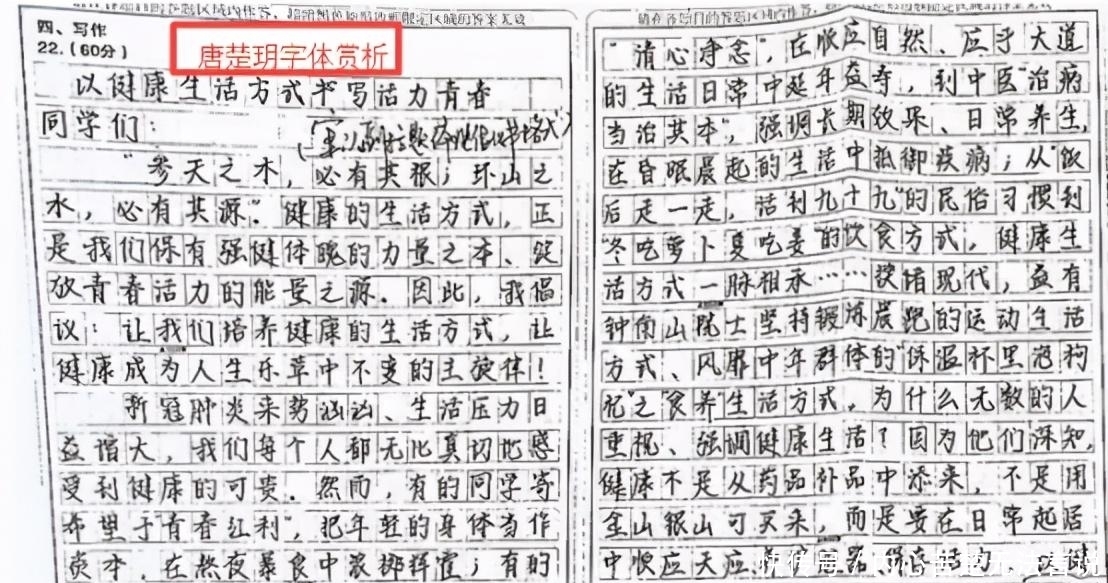 四、写作
22.(60分)
唐楚玥字体赏析
以健康生活方式书写活力青春
同学们:
"参天之木,必有其根;环山之
水,必有其源"。健康的生活方式,正
是我们保有强健体魄的力量之本、绽
放青春活力的能量之源。因此,我倡
议:让我们培养健康的生活方式,让
健康成为人生乐章中不变的主旋律!
新冠肺炎来势汹汹、生活压力日
益增大,我们每个人都无比真切地感
受到健康的可贵。然而,有的同学寄
希望于"青春红利",把年轻的身体当作
资本,在熬夜暴食中浪掷挥霍;有的
"清心净念",在顺应自然、应乎大道
的生活日常中延年益寿,到中医"治病
当治其本",强调长期效果、日常养生,
在昏眠晨起的生活中抵御疾病;从"饭
后走一走,活到九十九"的民俗习惯到
"冬吃萝卜夏吃姜"的饮食方式,健康生
活方式一脉相承……赓续现代,益有
钟南山院士坚持锻炼晨跑的运动生活
方式、风靡中年群体的"保温杯里泡枸
杞"之"食养"生活方式。为什么无数的人
重视、强调健康生活?因为他们深知,
健康不是从药品补品中添来,不是用
金山银山可买来,而是要在日常起居
中顺应天应